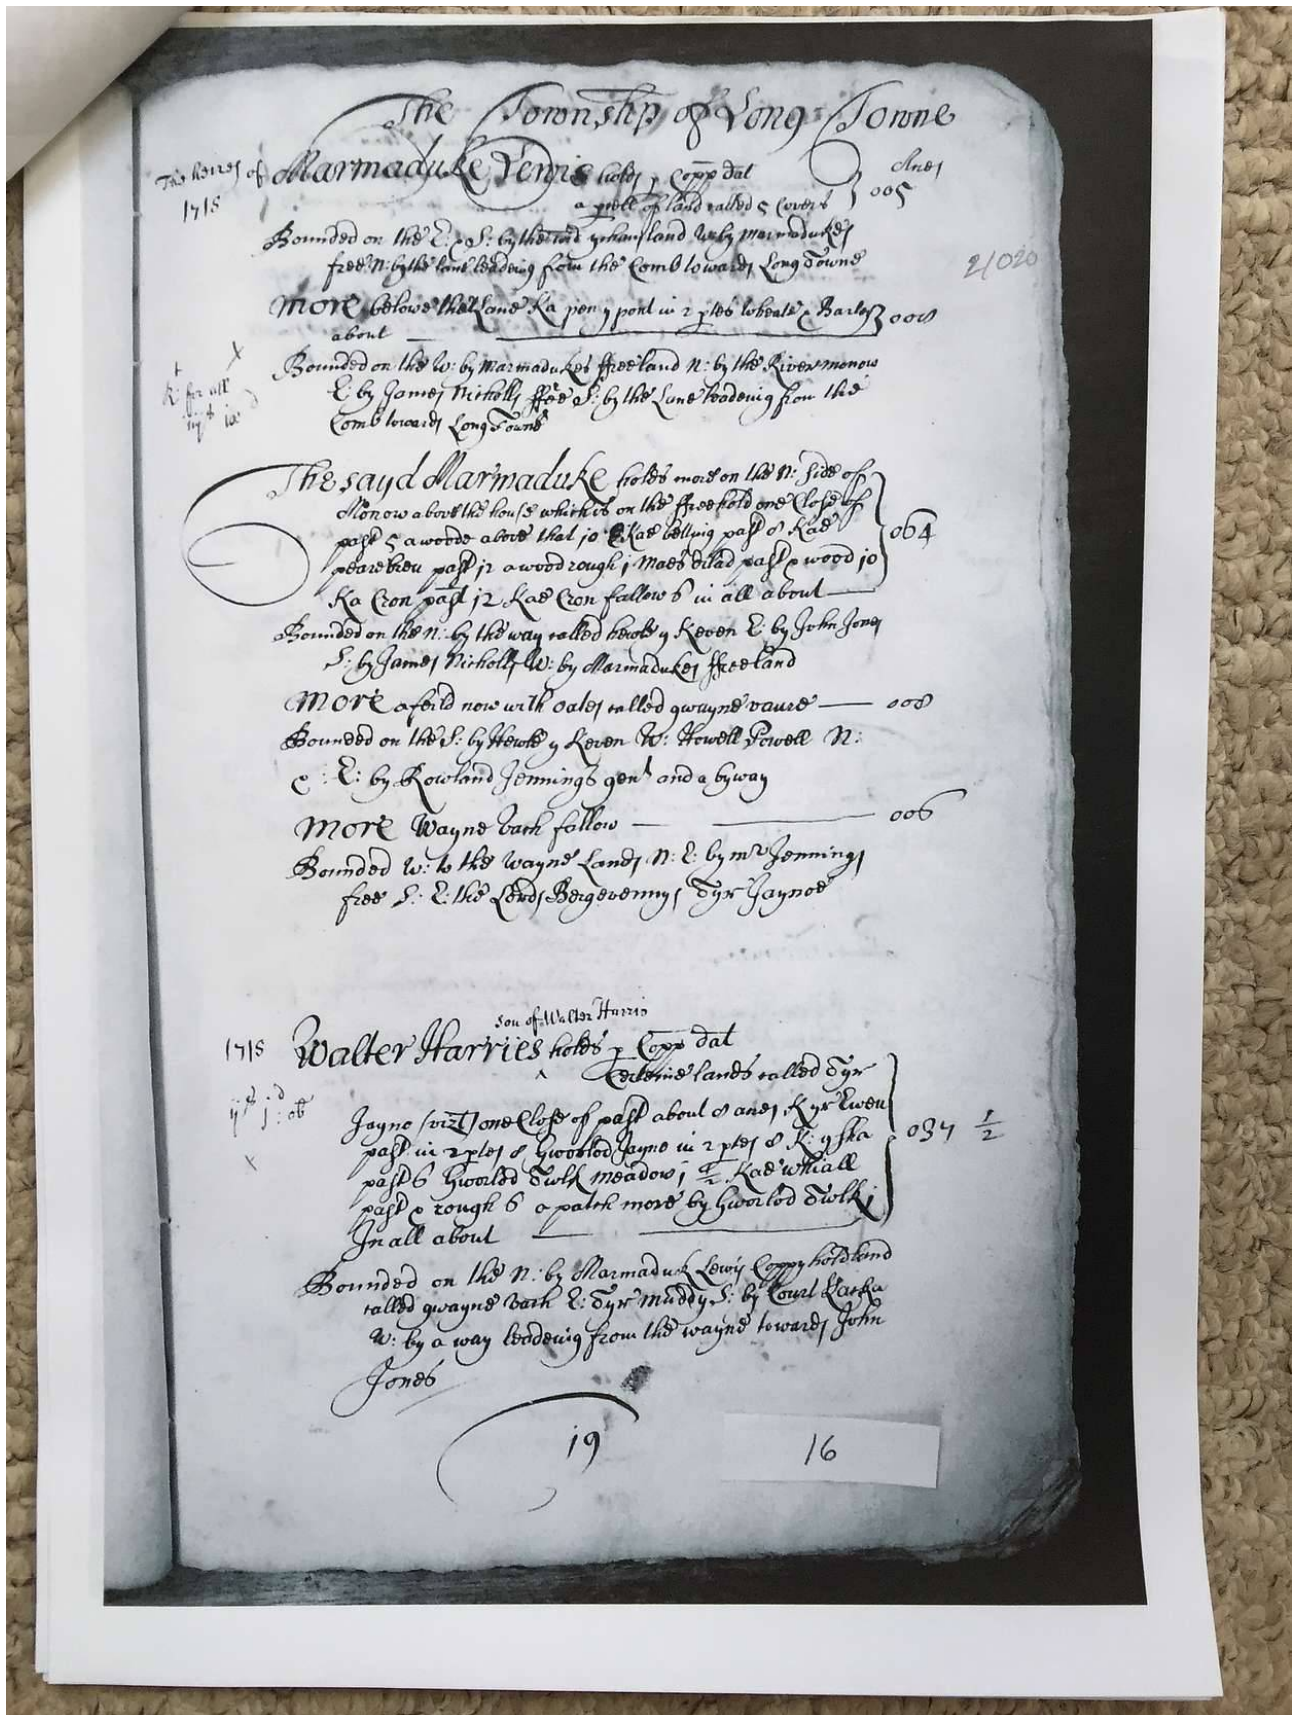 The Township of Long Towne
The heires of Marmaduke Lewis holds p Copp dat Acres
1718 a pcell of land called 5 Covers } 005
Bounded on the E: & S: by the land W: by Marmadukes
free N: by the lane leading from the Comb towards Long Towne
21020
More belowe the Lane Ka pen y pont in 2 ptes wheate & Barley } 008
about
Bounded on the W: by Marmadukes ffreeland N: by the River monow
E: by James Nicholls ffree S: by the Lane leadeing from the
Comb towards Long Towne
R: for all
The sayd Marmaduke holds more on the N: side of
Monow above the house which is on the ffreehold one Close of
past 5 a woode above that 10 Kae belling past 8 Kae
pearebren past 12 a wood rough 1 maes dilad past & wood 10 } 064
Ka Cron past 12 Kae Cron fallow 6 in all about
Bounded on the N: by the way called hewle y Keven E: by John Jones
S: by James Nicholls W: by Marmadukes ffreeland
More a feild now with oates called gwayne vaure 008
Bounded on the S: by Hewle y Keven W: Howell Powell N:
& E: by Rowland Jennings gent and a byway
More Wayne vach fallow 006
Bounded W: to the Wayne Lands N: E: by mr Jennings
free S: E: the Lords Bergevennys Tyr Jaynoe
son of Walter Harris
1718 Walter Harries holds p Copp dat
^ Certeine lands called Tyr
Jayno (vizt) one Close of past about 8 acres Kyr Ewen
past in 2 ptes 8 Gworlod Jayno in 2 ptes 8 K: y ska } 037 1/2
past 6 Gworlod Twlk meadow 1 1/2 Kae whiall
past & rough 6 a patch more by Gworlod Twlk 1
In all about
Bounded on the N: by Marmaduk Lewis Coppyhold land
called gwayne vach E: Tyr muddy S: by Court Kacka
W: by a way leadeing from the wayne towards John
Jones
19
16